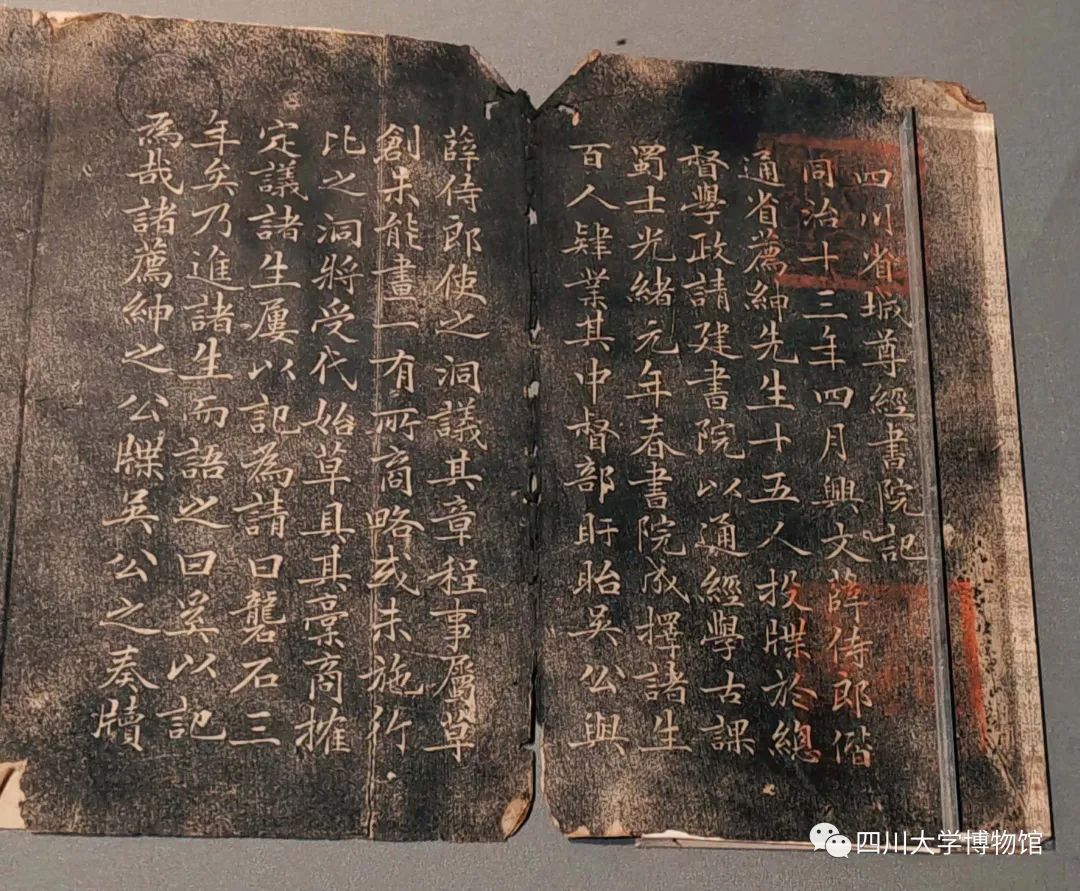 四川省城尊經書院記
同治十三年四月興文薛侍郎偕
通省薦紳先生十五人投牒於總
督學政請建書院以通經學古課
蜀士光緒元年春書院成擇諸生
百人肄業其中督部盱眙吳公與
薛侍郎使之洞議其章程事屬草
創未能畫一有所商略或未施行
比之洞將受代始草具其稾商搉
定議諸生屢以記為請曰礱石三
年矣乃進諸生而語之曰奚以記
為哉諸薦紳之公牒吳公之奏牘
四川大学博物馆